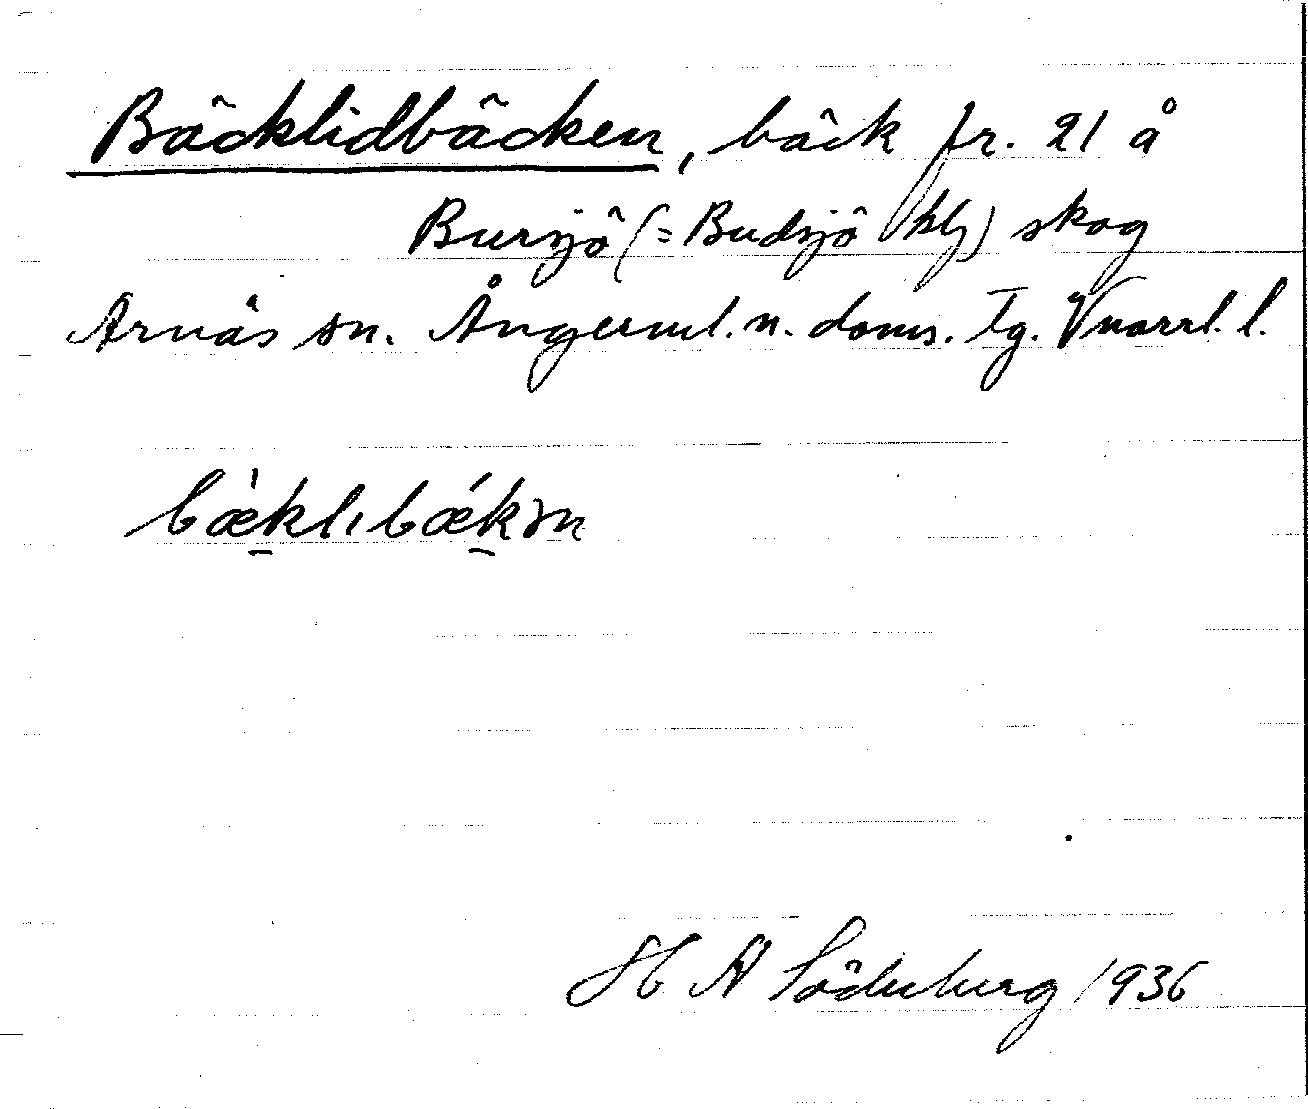 Bäcklidbäcken, bäck fr. 21 å
Bursjö (= Budsjö kbl) skog
Arnäs sn. Ångerml. n. doms. tg. Vnorrl. l.
bæ̀klıbǽkən
H A Söderberg 1936